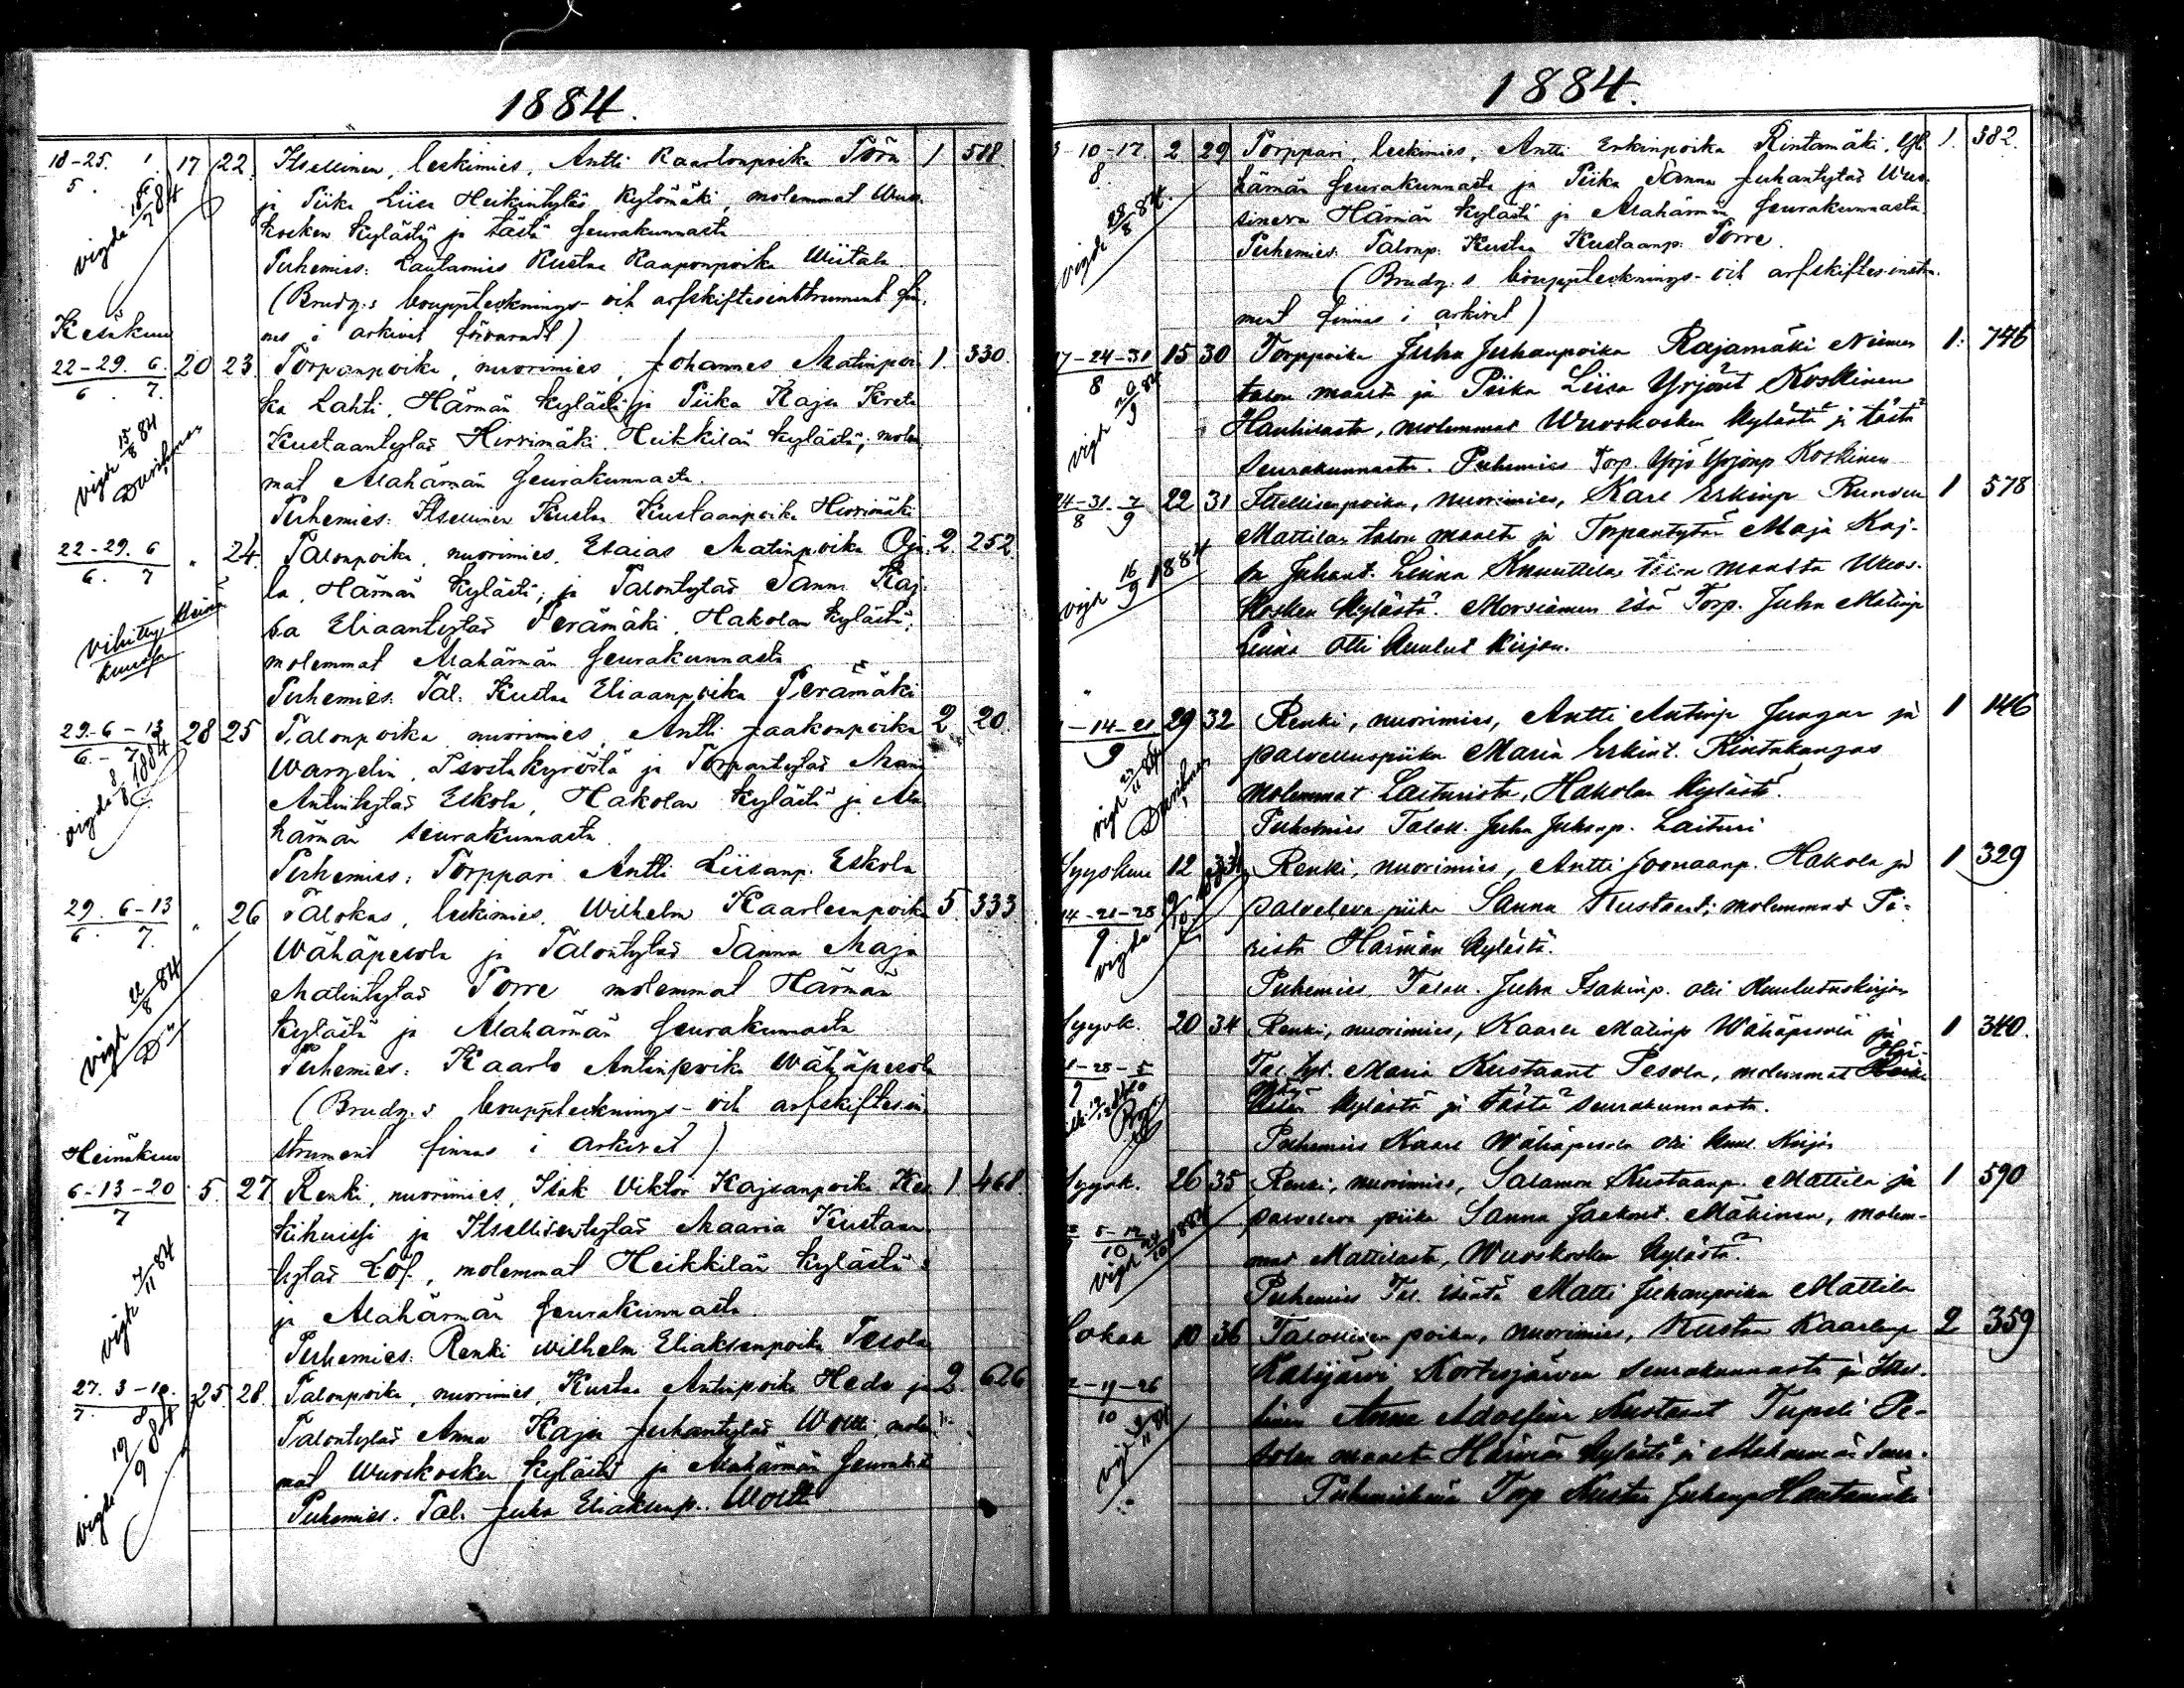 1884.
18-25. 1. 17 22. Itsellinen, leskimies, Antti Kaarlonpoika Törn 1 518.
5. 6. ja Piika Liisa Heikintytär Kylömäki, molemmat Wuos-
vigde 18/7 84 kosken kylästä ja tästä seurakunnasta
Puhemies: Lautamies Kustaa Kaaponpoika Wiitala
(Brudg:s bouppteknings- och arfskiftesinstrument fin-
Kesäkuu nes i arkivet förvaradt)
22-29. 6. 20 23. Torpanpoika, nuorimies, Johannes Matinpoi- 1. 330.
6. 7. ka Lahti, Härmän kylästä ja Piika Kajsa Kreta
vigde 15/8 84 Kustaantytär Hirsimäki, Heikkilän kylästä, molem-
mat Alahärmän seurakunnasta.
Puhemies: Itsellinen Kustaa Kustaanpoika Hirsimäki
22-29. 6 " 24. Talonpoika, nuorimies, Esaias Matinpoika Oja- 2. 252.
6. 7 la, Härmän kylästä, ja Talontytär Sanna Kaj-
vihitty Heinä sa Eliaantytär Perämäki, Hakolan kylästä,
kuussa molemmat Alahärmän seurakunnasta
Puhemies. Tal. Kustaa Eliaanpoika Perämäki
29-6-13 28 25 Talonpoika nuorimies, Antti Jaakonpoika 2 20.
6.- 7 Wargelin, Isostakyröstä ja Torpantytär Mari
vigde 8/8 1884 Antintytär Eskola, Hakolan kylästä ja Ala-
härmän seurakunnasta
Puhemies: Torppari Antti Liisanp. Eskola
29. 6-13 " 26 Talokas, leskimies, Wilhelm Kaarleenpoika 5. 333
6. 7. Wähäpesola ja Talontytär Sanna Maja
Matintytär Porre molemmat Härmän
vigde 22/8 84 kylästä ja Alahärmän seurakunnasta
Puhemies: Kaarlo Antinpoika Wähäpesola
(Brudg:s bouppteknings- och arfskiftesin-
Heinäkuu strument finnes i arkivet)
6-13-20 5. 27 Renki, nuorimies, Isak Viktor Kajsanpoika Kes- 1 468.
7 kihuissi ja Itsellisentytär Maaria Kustaan-
vigde 7/11 84 tytär Löf, molemmat Heikkilän kylästä
ja Alahärmän seurakunnasta.
Puhemies: Renki Wilhelm Eliaksenpoika Pesola
27. 3-10. 25. 28. Talonpoika, nuorimies, Kustaa Antinpoika Hedo ja 2. 626
7. 8 Talontytär Anna Kajsa Juhantytär Woltti, molem-
vigde 19/9 84 mat Wuoskosken kylästä ja Alahärmän seurak:ta
Puhemies. Tal. Juha Eliaksenp. Woltti
1884.
3-10-17 2 29 Torppari, leskimies, Antti Erkinpoika Rintamäki, Yli- 1. 382.
8 härmän seurakunnasta ja Piika Sanna Juhantytär Wuo-
vigde 29/8 84. Härmän kylästä ja Alahärmän seurakunnasta.
Puhemies. Talonp. Kustaa Kustaanp. Porre.
(Brudg:s bouppteknings- och arfskiftes-instru-
ment finnes i arkivet)
17-24-31 15 30 Torppoika Juha Juhanpoika Rajamäki Niemen 1. 746
8 talon maalta ja Piika Liisa Yrjönt Koskinen
vigde Wuoskosken kylästä ja tästä
seurakunnasta. Puhemies Torp. Yrjö Yrjönp Koskinen
24-31-7 22 31 Itsellisenpoika, nuorimies, Karl Erkinp Runsen 1 578
8 9 Mattilan talon maalta ja Torpantytär Maja Kaj-
vigde 16/9 1884 sa Juhant. Leinna Knuuttilan talon maalta Wuos-
kosken kylästä. Morsiamen isä Torp. Juha Matinp
Leina otti kuulut kirjan.
-14-21 29 32 Renki, nuorimies, Antti Antinp Jungar ja 1 146
9 palvelluspiika Maria Erkint. Rintakangas
vigde 23/11 84 molemmat Laiturista, Hakolan kylästä.
Puhemies Talol. Juha Juhanp. Laituri
Syyskuu 12 33 Renki, nuorimies, Antti Joonaanp. Hakola ja 1 329
14-21-28 palveleva piika Sanna Kustaant; molemmat
9 vigde Härmän kylästä.
Puhemies, Talol. Juha Isakinp. otti kuulutuskirjan
Syysk. 20 34 Renki, nuorimies, Kaarle Matinp Wähäpesola ja 1 340.
-28-5 Tal. tyt. Maria Kustaant Pesola, molemmat Här-
9 män kylästä ja tästä seurakunnasta.
Puhemies Kaarl Wähäpesola otti kuul. kirjan
Syysk. 26 35 Renki, nuorimies, Salamon Kustaanp. Mattila ja 1 590
5-12 palveleva piika Sanna Jaakont. Mäkinen, molem-
vigde 24/10 1884 mat Mattilasta, Wuoskosken kylästä.
Puhemies Tal. isäntä Matti Juhanpoika Mattila
Lokak 10 36 Talollisen poika, nuorimies, Kustaa Kaarlenp 2 359
12-19-26 Kalijärvi Kortesjärven seurakunnasta ja Itsel-
10 linen Anna Adolfina Kustaant Tupeli Pe-
vigde solan maalta Härmän kylästä ja Alahärmän seur.
Puhemiehenä Torp Kustaa Juhanp Hantamäki